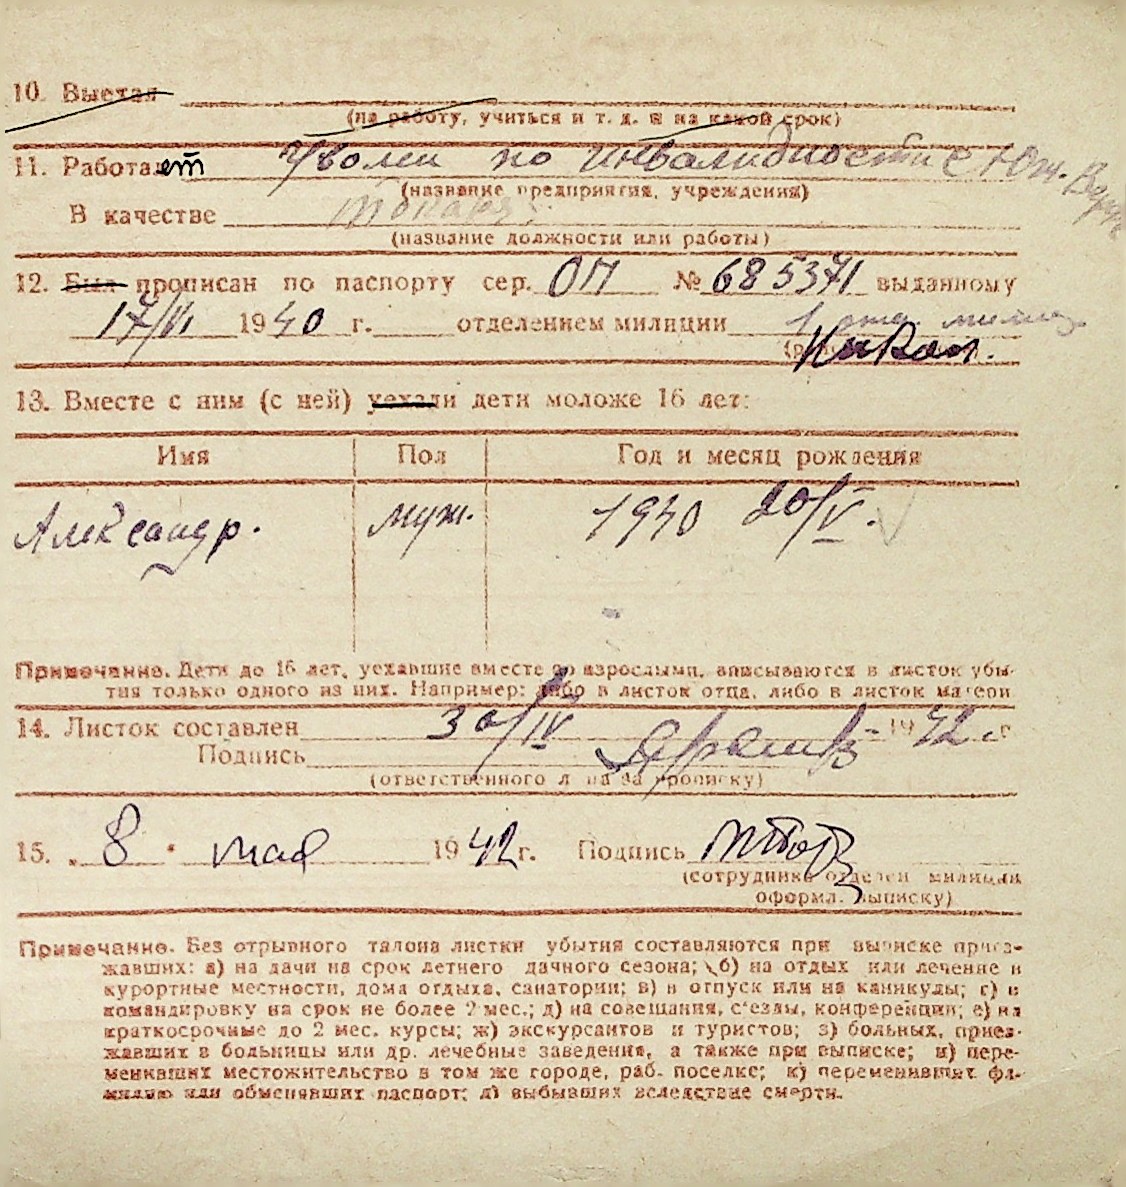 10. Выехал
(на работу, учиться и т. д. и на какой срок)
11. Работает Уволен по инвалидности с Юж.
(название предприятия, учреждения)
В качестве токаря.
(название должности или работы)
12. Был прописан по паспорту сер. ОП № 685371 выданному
17/VI 1940 г. отделением милиции 1 отд. милиц.
13. Вместе с ним (с ней) уехали дети моложе 16 лет:
Имя Пол Год и месяц рождения
Александр. муж. 1940 20/V.
Примечание. Дети до 16 лет, уехавшие вместе со взрослыми, вписываются в листок убы-
тия только одного из них. Например: либо в листок отца, либо в листок матери
14. Листок составлен 30/IV 1942 г
Подпись
(ответственного л на за прописку)
15. „ 8 " мая 1942 г. Подпись
(сотрудника отделен милиции
оформл. выписку)
Примечание. Без отрывного талона листки убытия составляются при выписке приез-
жавших: а) на дачи на срок летнего дачного сезона; б) на отдых или лечение в
курортные местности, дома отдыха, санатории; в) в отпуск или на каникулы; г) в
командировку на срок не более 2 мес.; д) на совещания, с'езды, конференции; е) на
краткосрочные до 2 мес. курсы; ж) экскурсантов и туристов; з) больных, приез-
жавших в больницы или др. лечебные заведения, а также при выписке; и) пере-
менивших местожительство в том же городе, раб. поселке; к) переменивших фа-
милию или обменявших паспорт; л) выбывших вследствие смерти.